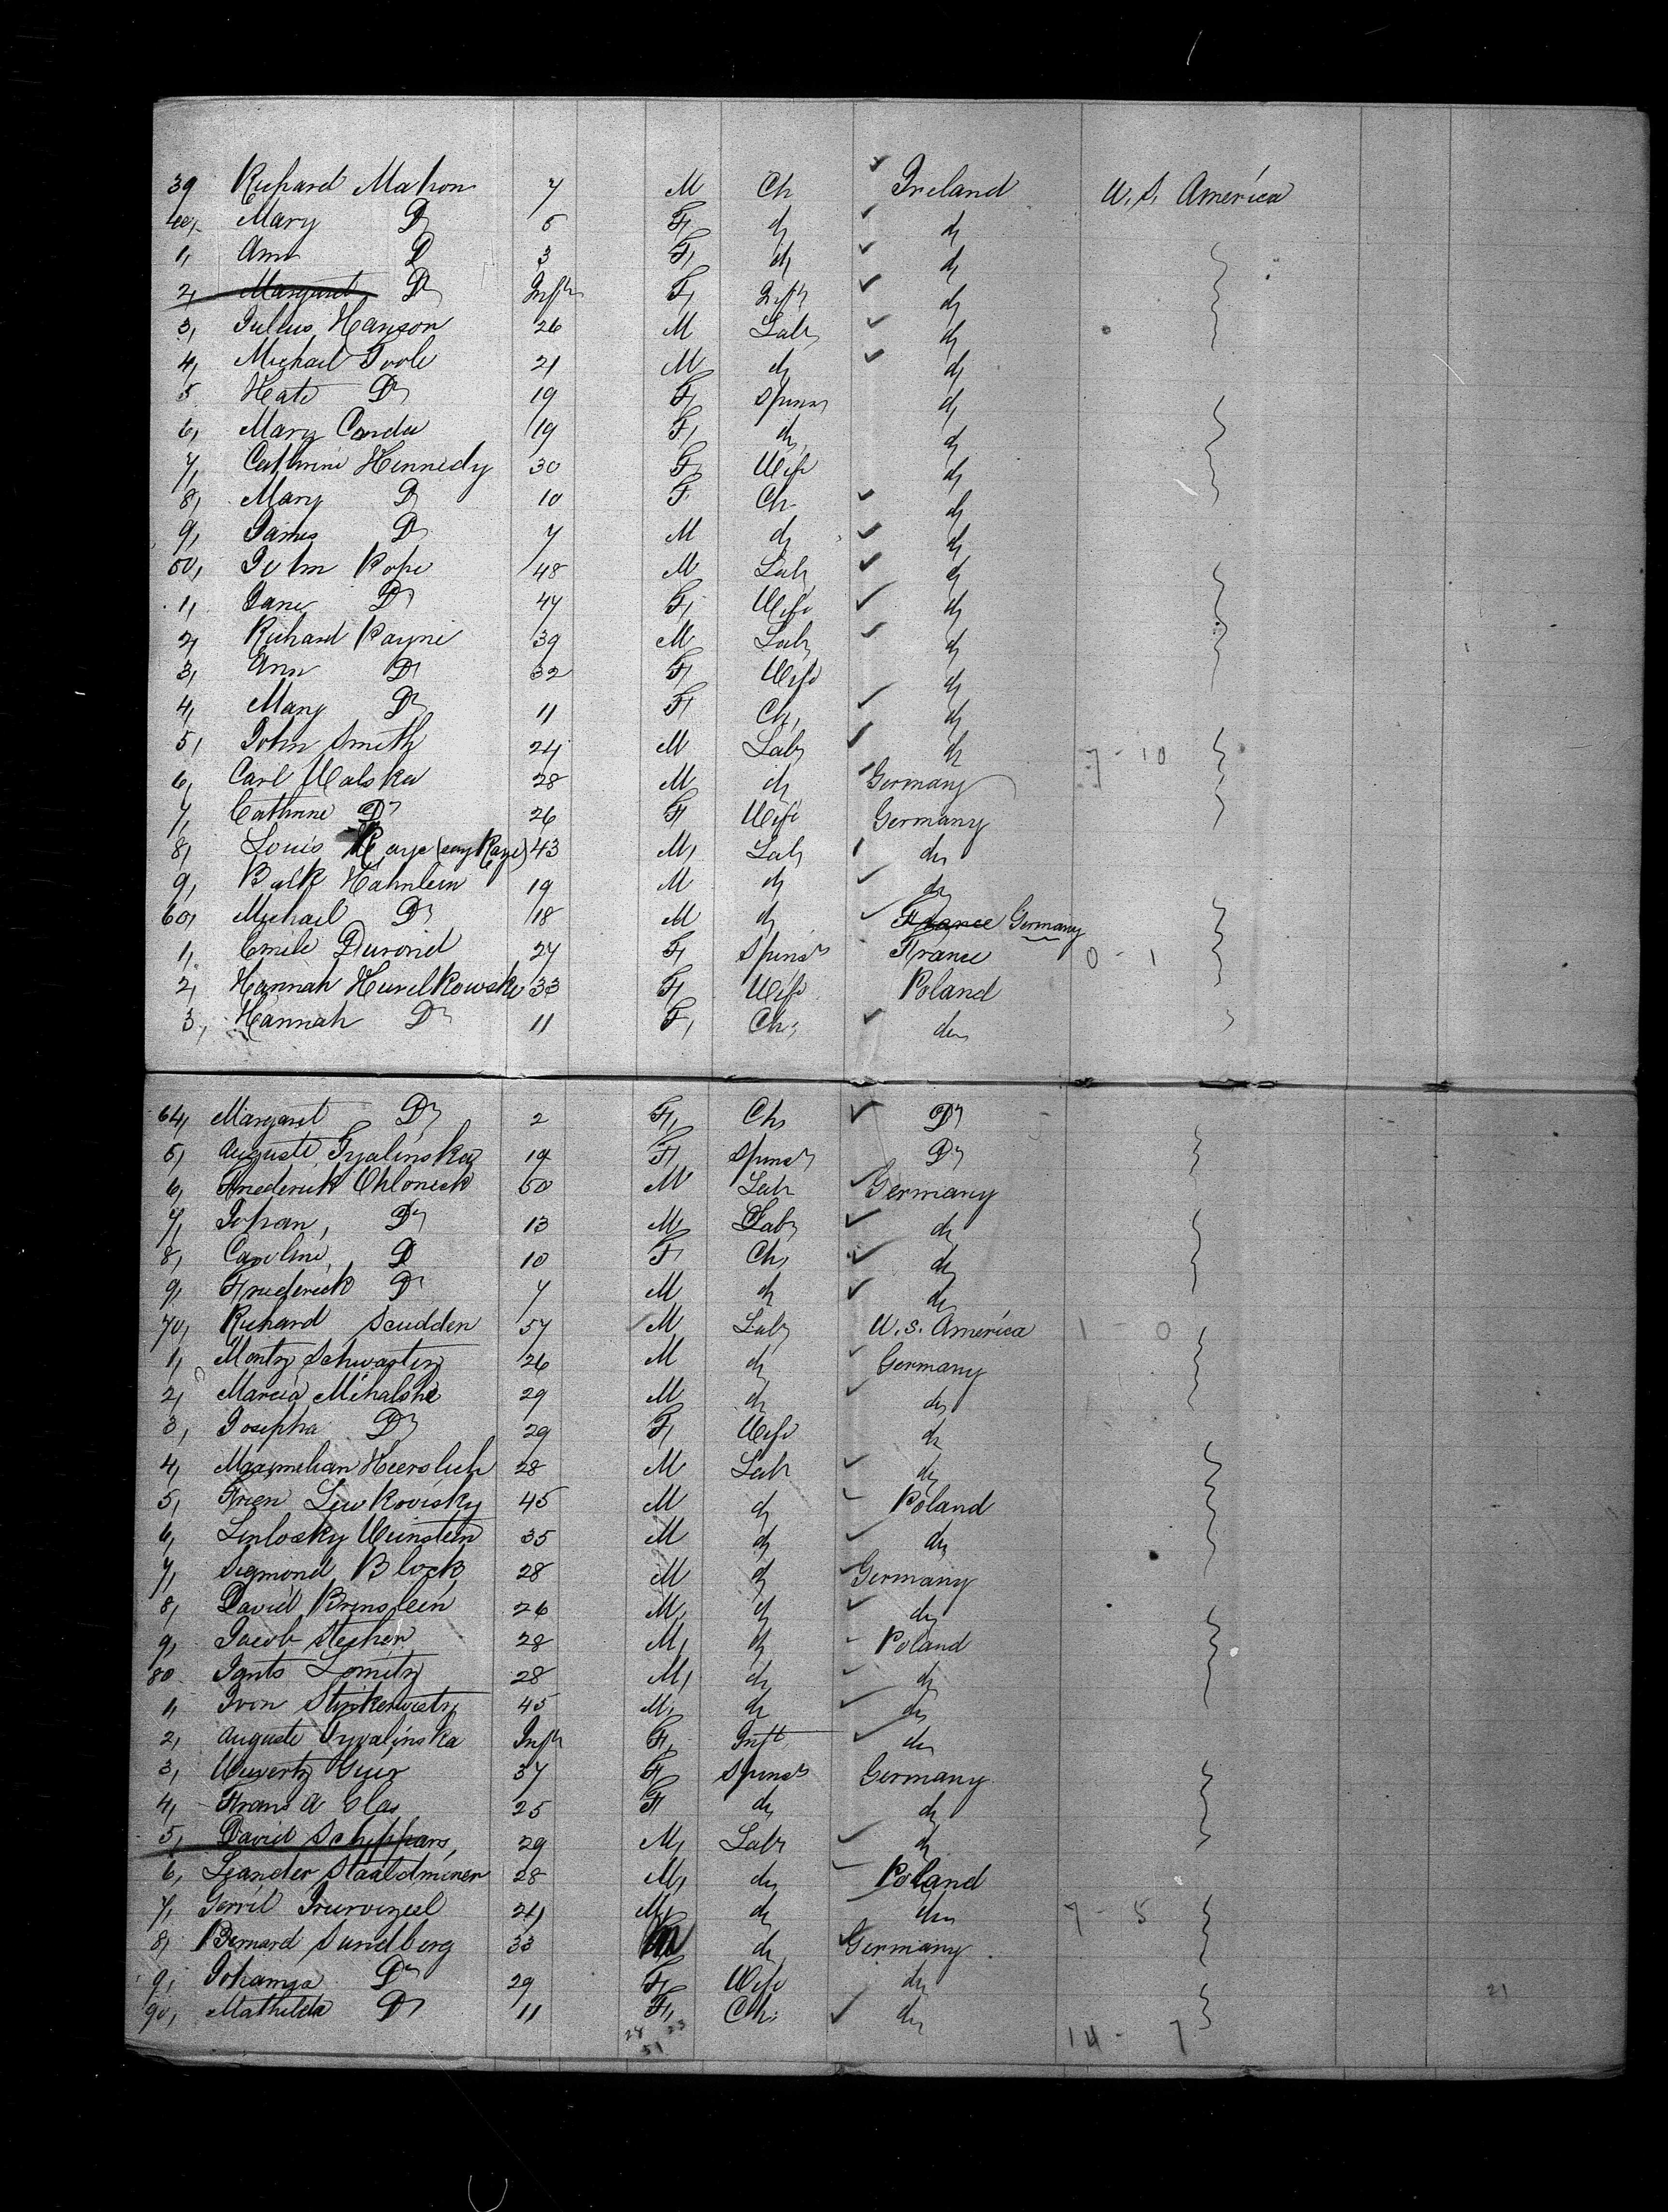 39 Richard Mahon 7 M Ch Ireland U.S. America
40, Mary Do 5 F, do do
1, Ann Do 3 F, do do
2, Margaret Do Inft F, Inft do
3, Julius Hanson 26 M Labr do
4, Michael Toole 21 M do do
5 Kate Do 19 F, Spinsr do
6, Mary 19 F, do do
7, Cathrine Kennedy 30 F, Wife do
8, Mary Do 10 F Ch do
9, James Do 7 M do do
50, John Pope 48 M Labr do
1, Jane Do 47 F, Wife do
2, Richard Payne 39 M Labr do
3, Ann Do 32 F, Wife do
4, Mary Do 11 F Ch, do
5, John Smith 24 M Labr do 7-10
6, Carl Walska 28 M do Germany
7, Cathrine Do 26 F, Wife Germany
8, Louis Raye 43 M, Labr do
9, Balk Hahnlein 19 M do do
60, Michael Do 18 M do France Germany
1, Emile 27 F, Spinsr France 0-1
2, Hannah 33 F, Wife Poland
3, Hannah Do 11 F, Ch, do
64, Margaret Do 2 F, Ch, Do
5, Auguste 19 F, Spinsr Do
6, Frederick 50 M Labr Germany
7, Johan, Do 13 M, Labr do
8, Caroline, Do 10 F Ch, do
9, Frederick Do 7 M do do
70, Richard Scudder 57 M Labr U.S. America 1 0
1, Schwartz 26 M do Germany
2, Mihalske 29 M do do
3, Josepha Do 29 F, Wife do
4, Maximelian 28 M Labr do
5, Lewkovisky 45 M do Poland
6, Weinstein 35 M do do
7, Segmond Block 28 M do Germany
8, David Brinslein 26 M, do do
9, Jacob 28 M, do Poland
80 28 M, do do
1, 45 M, do do
2, Auguste Inft F, Inft do
3, 37 F, Spinsr Germany
4, Frans A 25 F do do
5, David Schippars, 29 M, Labr do
6, Leander 28 M, do Poland
7, Gerrit 24 M, do do 7-5
8, Bernard Sundberg 33 M do Germany
9, Do 29 F, Wife do
90, Mathilda Do 11 F, Ch, do
28 23 14-7
51
21